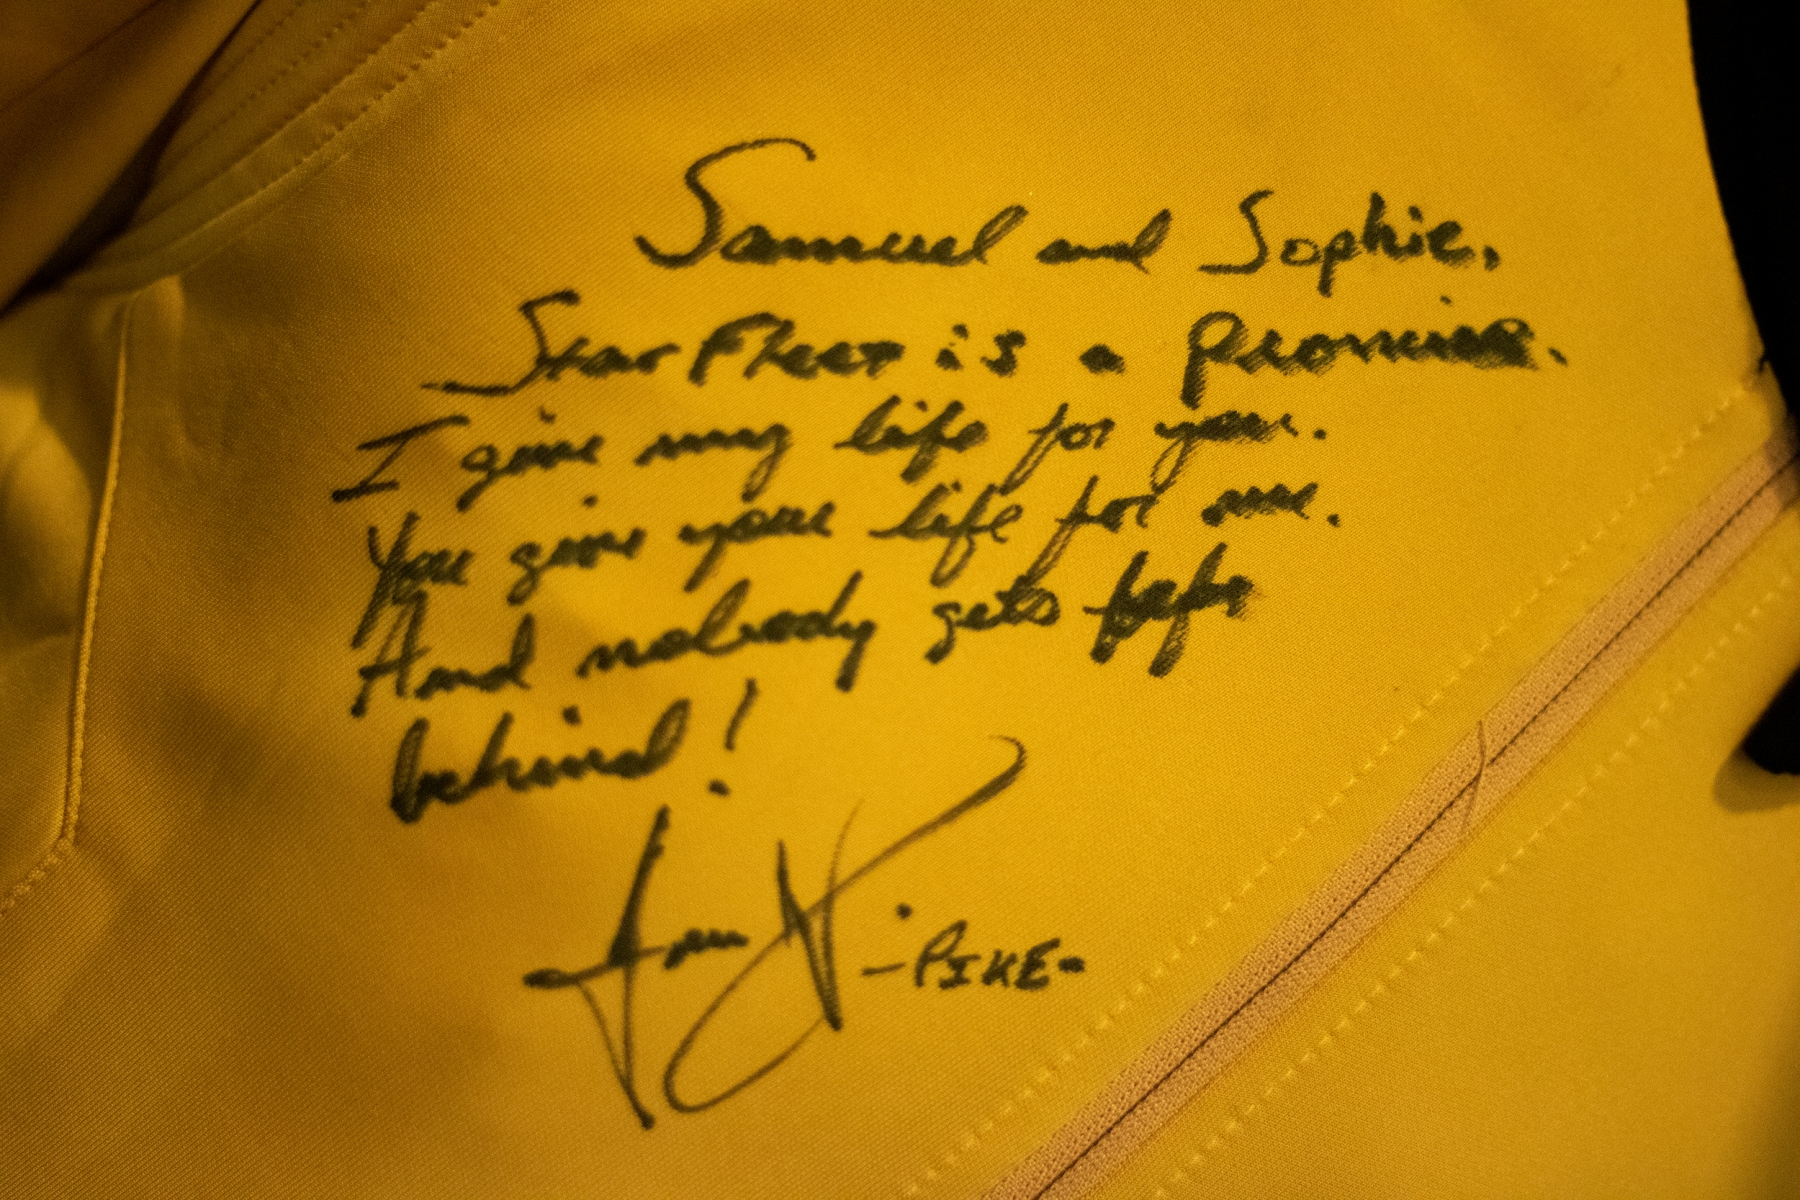 Samuel and Sophie,
Starfleet is a promise.
I give my life for you.
You give your life for me.
And nobody gets left
behind!
-PIKE-